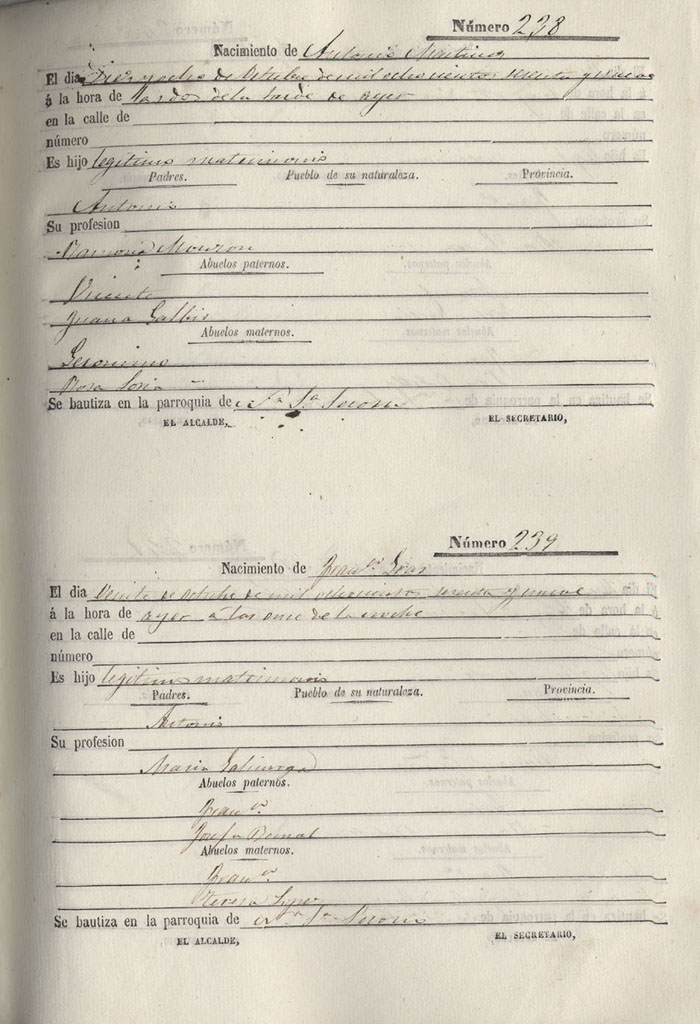 Número 238
Nacimiento de Antonio Martinez
El dia Diez y ocho de Octubre de mil ochocientos sesenta y nueve
á la hora de de la tarde de ayer
en la calle de
número
Es hijo legitimo matrimonio
Padres. Pueblo de su naturaleza. Provincia.
Antonio
Su profesion
Ramona Monzon
Abuelos paternos.
Vicente
Juana Galbis
Abuelos maternos.
Geronimo
Rosa Soria
Se bautiza en la parroquia de
EL ALCALDE, EL SECRETARIO,
Número 239
Nacimiento de Franco
El dia Veinte de Octubre de mil ochocientos sesenta y nueve
á la hora de ayer a las once de la noche
en la calle de
número
Es hijo legitimo matrimonio
Padres. Pueblo de su naturaleza. Provincia.
Antonio
Su profesion
Maria
Abuelos paternos.
Franco
Josefa Bernal
Abuelos maternos.
Franco
Teresa Lopez
Se bautiza en la parroquia de
EL ALCALDE, EL SECRETARIO,